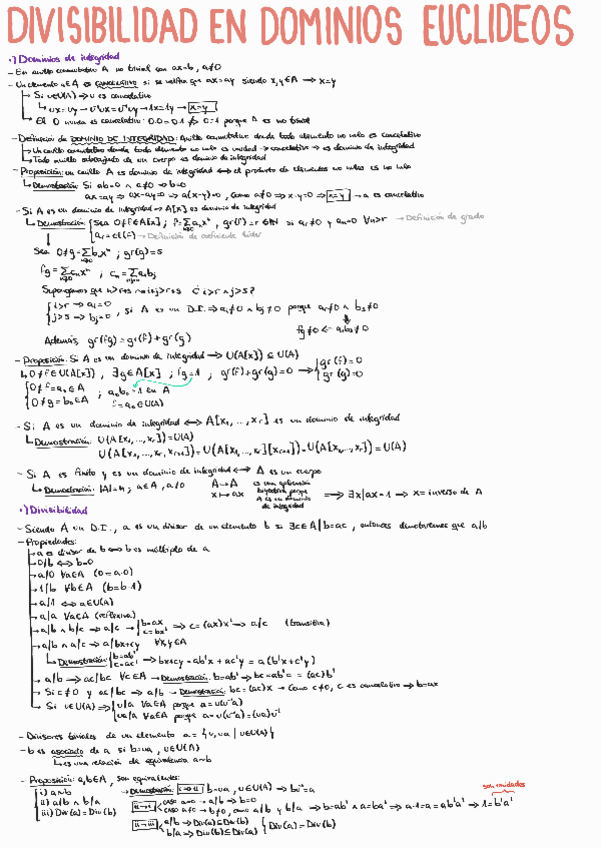 DIVISIBILIDAD EN DOMINIOS EUCLIDEOS
·) Dominios de integridad
- En anillo conmutativo A no trivial con ax=b, a≠0
- Un elemento a∈A es CANCELATIVO si se verifica que ax=ay siendo x,y∈A → x=y
Si u∈U(A) → u es cancelativo
ux=uy → u⁻¹ux=u⁻¹uy → 1x=1y → x=y
El 0 nunca es cancelativo: 0·0=0·1 ⇏ 0=1 porque A es no trivial
- Definición de DOMINIO DE INTEGRIDAD: Anillo conmutativo donde todo elemento no nulo es cancelativo
Un anillo conmutativo donde todo elemento no nulo es unidad → cancelativo → es dominio de integridad
Todo anillo subconjunto de un cuerpo es dominio de integridad
- Proposición: un anillo A es dominio de integridad ⟷ el producto de elementos no nulos es no nulo
Demostración: Si ab=0 ∧ a≠0 → b=0
ax=ay → ax-ay=0 → a(x-y)=0, como a≠0 → x-y=0 → x=y → a es cancelativo
- Si A es un dominio de integridad → A[x] es dominio de integridad
Demostración: Sea 0≠f∈A[x]; f=∑aₙxⁿ, gr(f)=r∈N si aᵣ≠0 y aₙ=0 ∀n>r → Definición de grado
aᵣ=cl(f) → Definición de coeficiente líder
Sea 0≠g=∑bₙxⁿ; gr(g)=s
fg=∑cₙxⁿ; cₙ=∑aᵢbⱼ
Supongamos que n>r+s
i>r → aᵢ=0
j>s → bⱼ=0, si A es un D.I. → aᵣ≠0 ∧ bₛ≠0 porque
fg≠0 ← aᵣbₛ≠0
Además, gr(fg)=gr(f)+gr(g)
- Proposición: Si A es un dominio de integridad → U(A[x]) ⊆ U(A)
0≠f∈U(A[x]), ∃g∈A[x]; fg=1; gr(f)+gr(g)=0 → gr(f)=0
gr(g)=0
0≠f=a₀∈A
0≠g=b₀∈A; a₀b₀=1 en A
f=a₀∈U(A)
- Si A es un dominio de integridad ⟷ A[x₁,...,xᵣ] es un dominio de integridad
Demostración: U(A[x₁,...,xᵣ])=U(A)
U(A[x₁,...,xᵣ,xᵣ₊₁])=U(A[x₁,...,xᵣ][xᵣ₊₁])=U(A[x₁,...,xᵣ])=U(A)
- Si A es finito y es un dominio de integridad ⟷ A es un cuerpo
Demostración: |A|=n; a∈A, a≠0 A→A es una aplicación
x↦ax biyectiva porque
A es un dominio
de integridad → ∃x|ax=1 → x=inverso de A
·) Divisibilidad
- Siendo A un D.I., a es un divisor de un elemento b si ∃c∈A|b=ac, entonces denotaremos que a/b
- Propiedades:
a es divisor de b ⟷ b es múltiplo de a
0/b ⟷ b=0
a/0 ∀a∈A (0=a·0)
1/b ∀b∈A (b=b·1)
a/1 ⟷ a∈U(A)
a/a ∀a∈A (reflexiva)
a/b ∧ b/c → a/c → b=ax
c=bx' → c=(ax)x' → a/c (transitiva)
a/b ∧ a/c → a/bx+cy ∀x,y∈A
Demostración: b=ab'
c=ac' → bx+cy=ab'x+ac'y=a(b'x+c'y)
a/b → ac/bc ∀c∈A → Demostración: b=ab' → bc=ab'c=(ac)b'
Si c≠0 y ac/bc → a/b → Demostración: bc=(ac)x → Como c≠0, c es cancelativo → b=ax
Si u∈U(A) → u/a ∀a∈A porque a=u(u⁻¹a)
ua/a ∀a∈A porque a=u(u⁻¹a)=(ua)u⁻¹
- Divisores triviales de un elemento a={u,ua | u∈U(A)}
- b es asociado de a si b=ua, u∈U(A)
es una relación de equivalencia a~b
- Proposición: a,b∈A, son equivalentes:
i) a~b
ii) a/b ∧ b/a
iii) Div(a)=Div(b)
Demostración: i→ii b=ua, u∈U(A) → bu⁻¹=a
ii→i caso a=0 → a/b → b=0
caso a≠0 → b≠0, como a/b y b/a → b=ab' ∧ a=ba' → a·1=a=ab'a' → 1=b'a'
son unidades
ii→iii a/b → Div(a)⊆Div(b)
b/a → Div(b)⊆Div(a) Div(a)=Div(b)